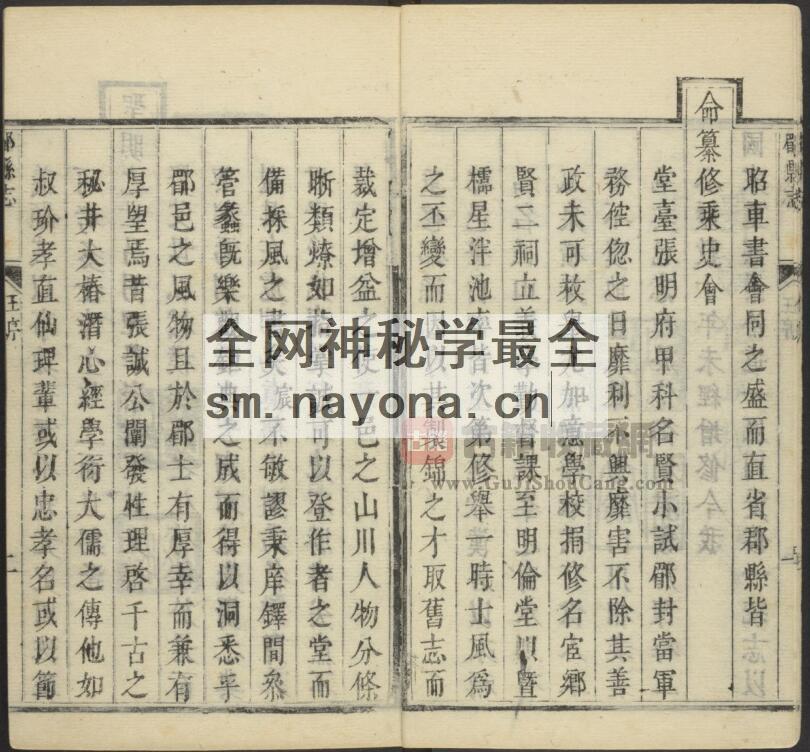 國
昭車書會同之盛而直省郡縣皆
命纂修乘史會
堂臺張明府甲科名賢小試郿封當軍
務倥偬之日靡利不興靡害不除其善
政未可枚 尤加意學校捐修名宦鄉
賢二祠立義 勸督課至明倫堂以暨
櫺星泮池 者次第修舉一時士風為
之丕變而 以其製錦之才取舊志而
裁定增益 邑之山川人物分條
晰類燎如 可以登作者之堂而
備採風之 宸不敏謬秉庠鐸間叅
管蠡旣樂 之成而得以洞悉乎
郿邑之風物且於郿士有厚幸而兼有
厚望焉昔張誠公闡發性理啓千古之
秘井大椿潛心經學衍大儒之傳他如
叔玠孝直仙理輩或以忠孝名或以節
郿縣志
王序
二
全网神秘学最全
sm.nayona.cn
古籍收藏网
www.GuJiShouCang.com